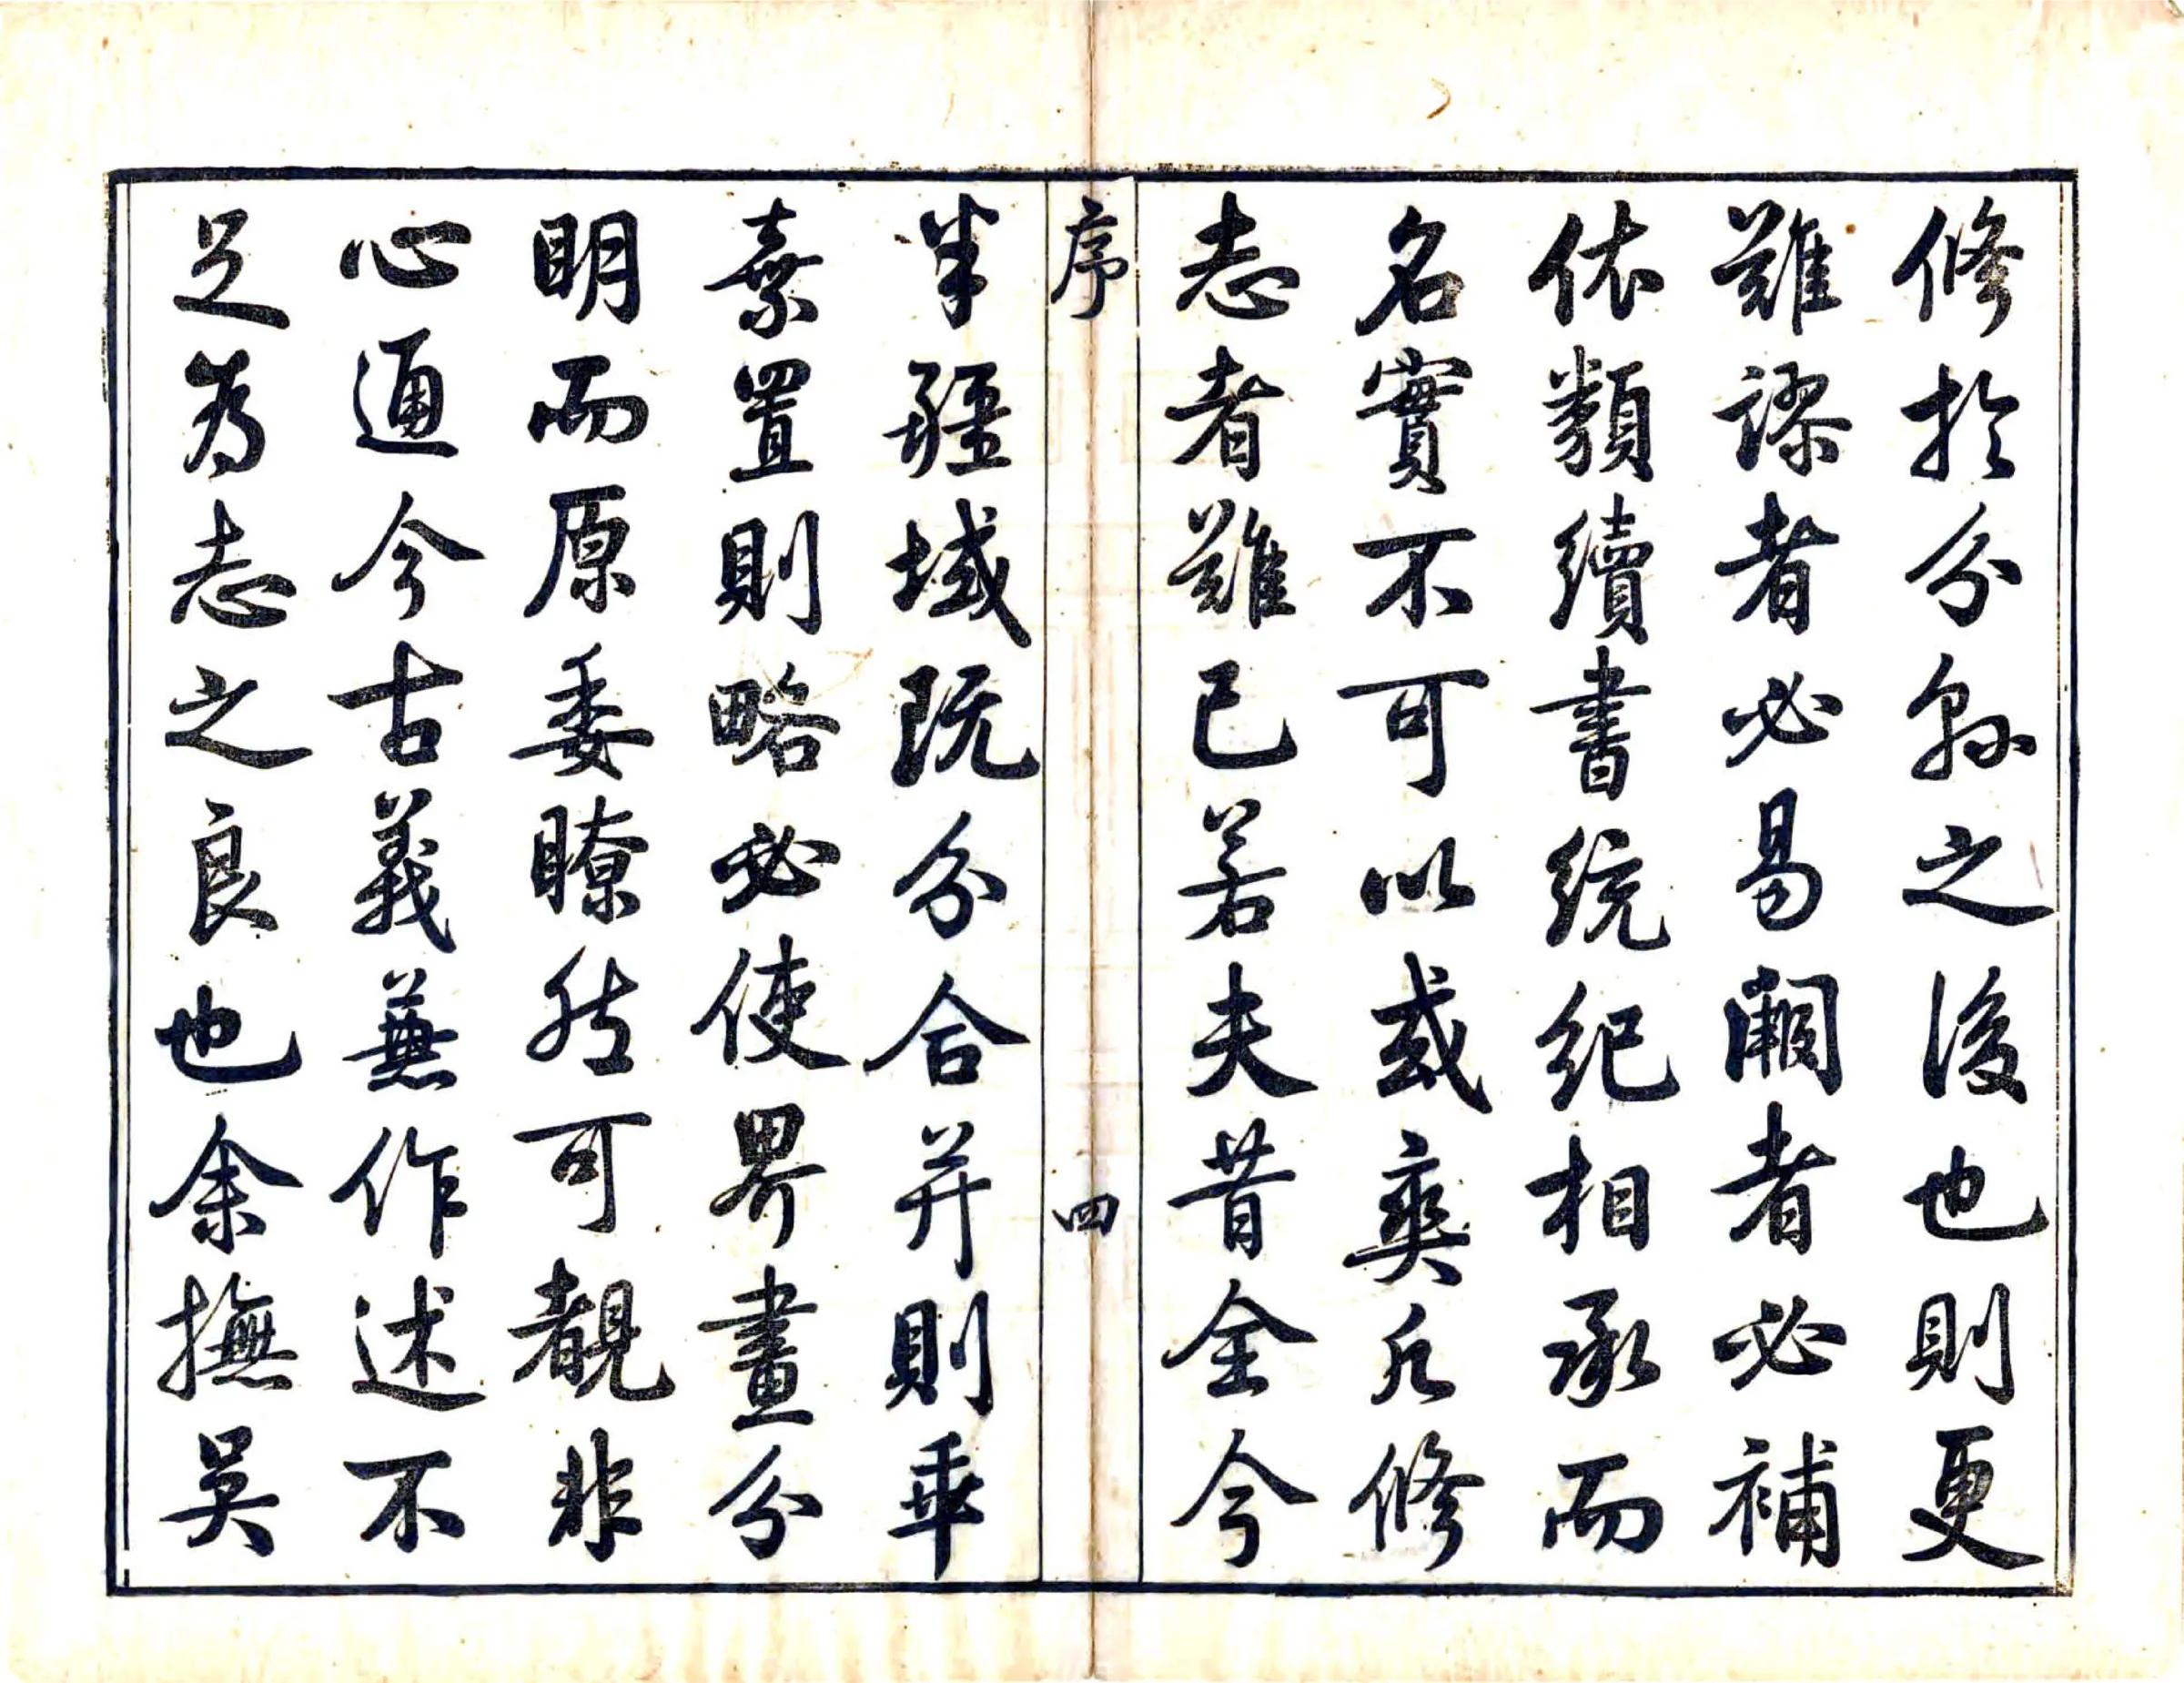 修於分縣之後也則更
難謬者必易闕者必補
依類續書統紀相承而
名實不可以或爽凡修
志者難已若夫昔全今
序 四
半疆域既分合并則乖
棄置則略必使界畫分
明而原委瞭然可覩非
心通今古義兼作述不
足為志之良也余撫吳